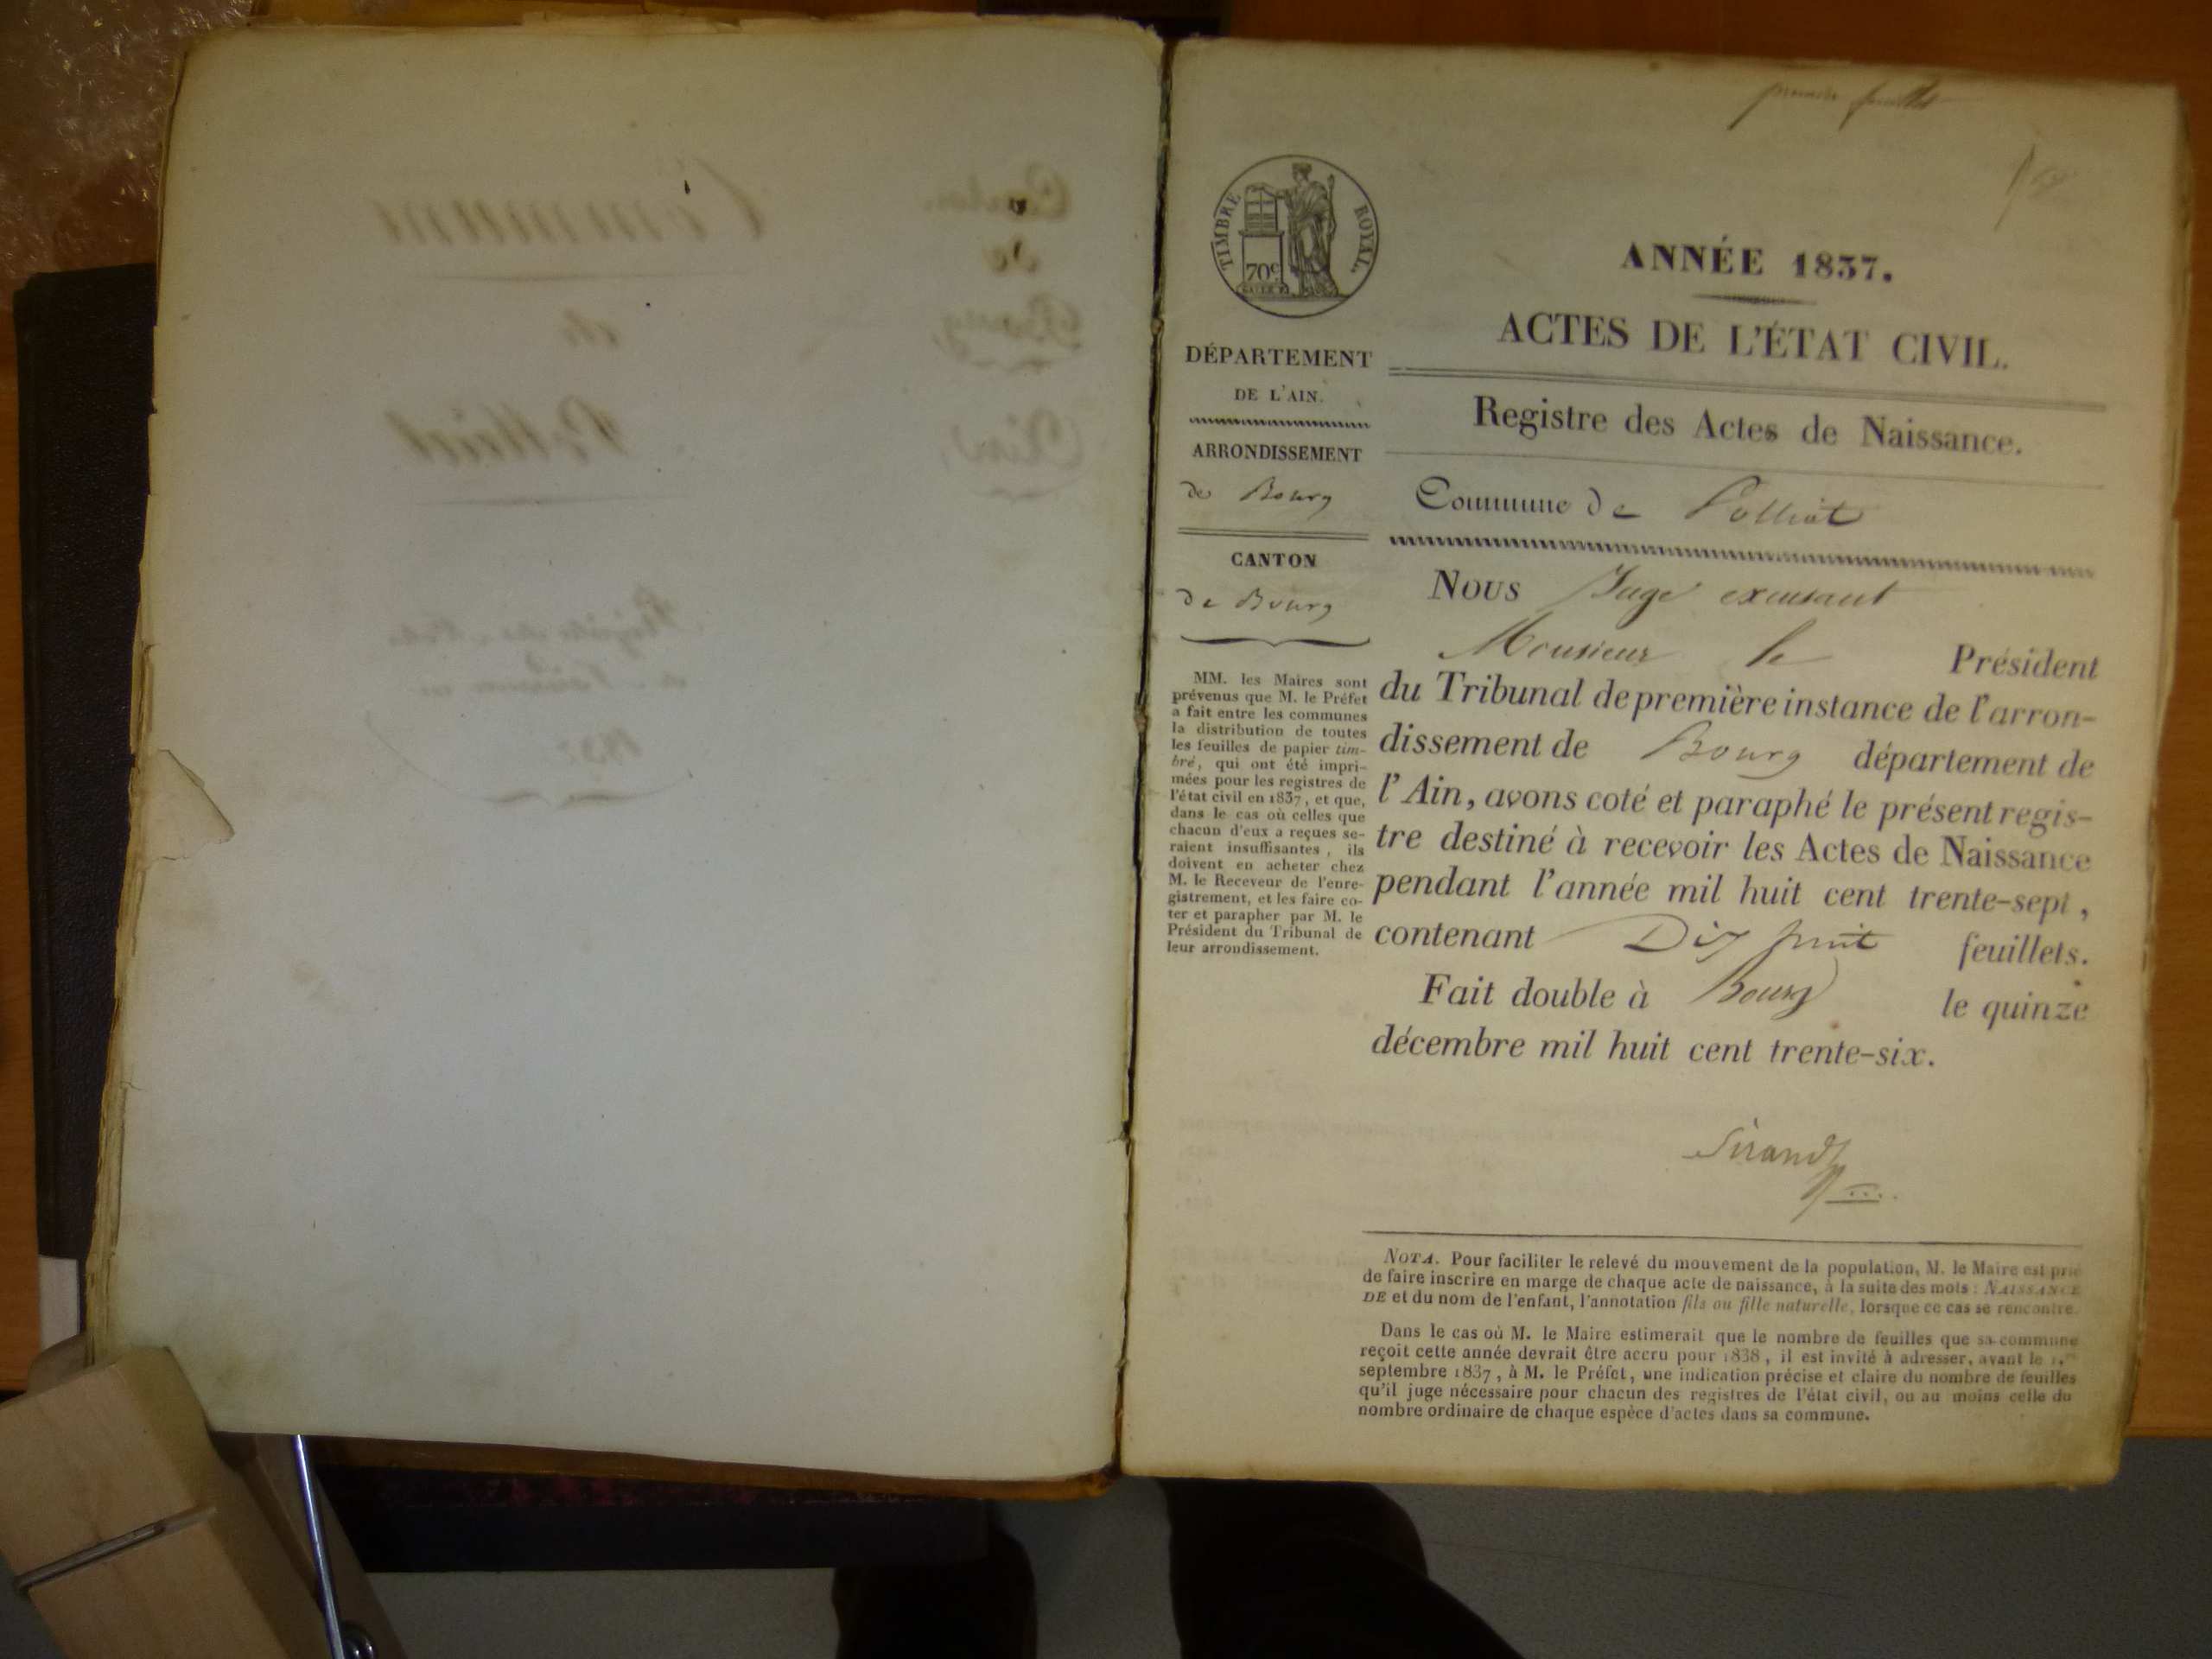 première feuille
TIMBRE ROYAL.
70c
ANNÉE 1837.
ACTES DE L'ÉTAT CIVIL.
Registre des Actes de Naissance.
Commune de Polliat
DÉPARTEMENT
DE L'AIN.
ARRONDISSEMENT
de Bourg
CANTON
de Bourg
MM. les Maires sont
prévenus que M. le Préfet
a fait entre les communes
la distribution de toutes
les feuilles de papier tim-
bré, qui ont été impri-
mées pour les registres de
l'état civil en 1837, et que,
dans le cas où celles que
chacun d'eux a reçues se-
raient insuffisantes, ils
doivent en acheter chez
M. le Receveur de l'enre-
gistrement, et les faire co-
ter et parapher par M. le
Président du Tribunal de
leur arrondissement.
Nous Juge excusant
Monsieur le Président
du Tribunal de première instance de l'arron-
dissement de Bourg département de
l'Ain, avons coté et paraphé le présent regis-
tre destiné à recevoir les Actes de Naissance
pendant l'année mil huit cent trente-sept,
contenant Dix huit feuillets.
Fait double à Bourg le quinze
décembre mil huit cent trente-six.
Sirand
NOTA. Pour faciliter le relevé du mouvement de la population, M. le Maire est prié
de faire inscrire en marge de chaque acte de naissance, à la suite des mots : NAISSANCE
DE et du nom de l'enfant, l'annotation fils ou fille naturelle, lorsque ce cas se rencontre.
Dans le cas où M. le Maire estimerait que le nombre de feuilles que sa commune
reçoit cette année devrait être accru pour 1838, il est invité à adresser, avant le 1.er
septembre 1837, à M. le Préfet, une indication précise et claire du nombre de feuilles
qu'il juge nécessaire pour chacun des registres de l'état civil, ou au moins celle du
nombre ordinaire de chaque espèce d'actes dans sa commune.